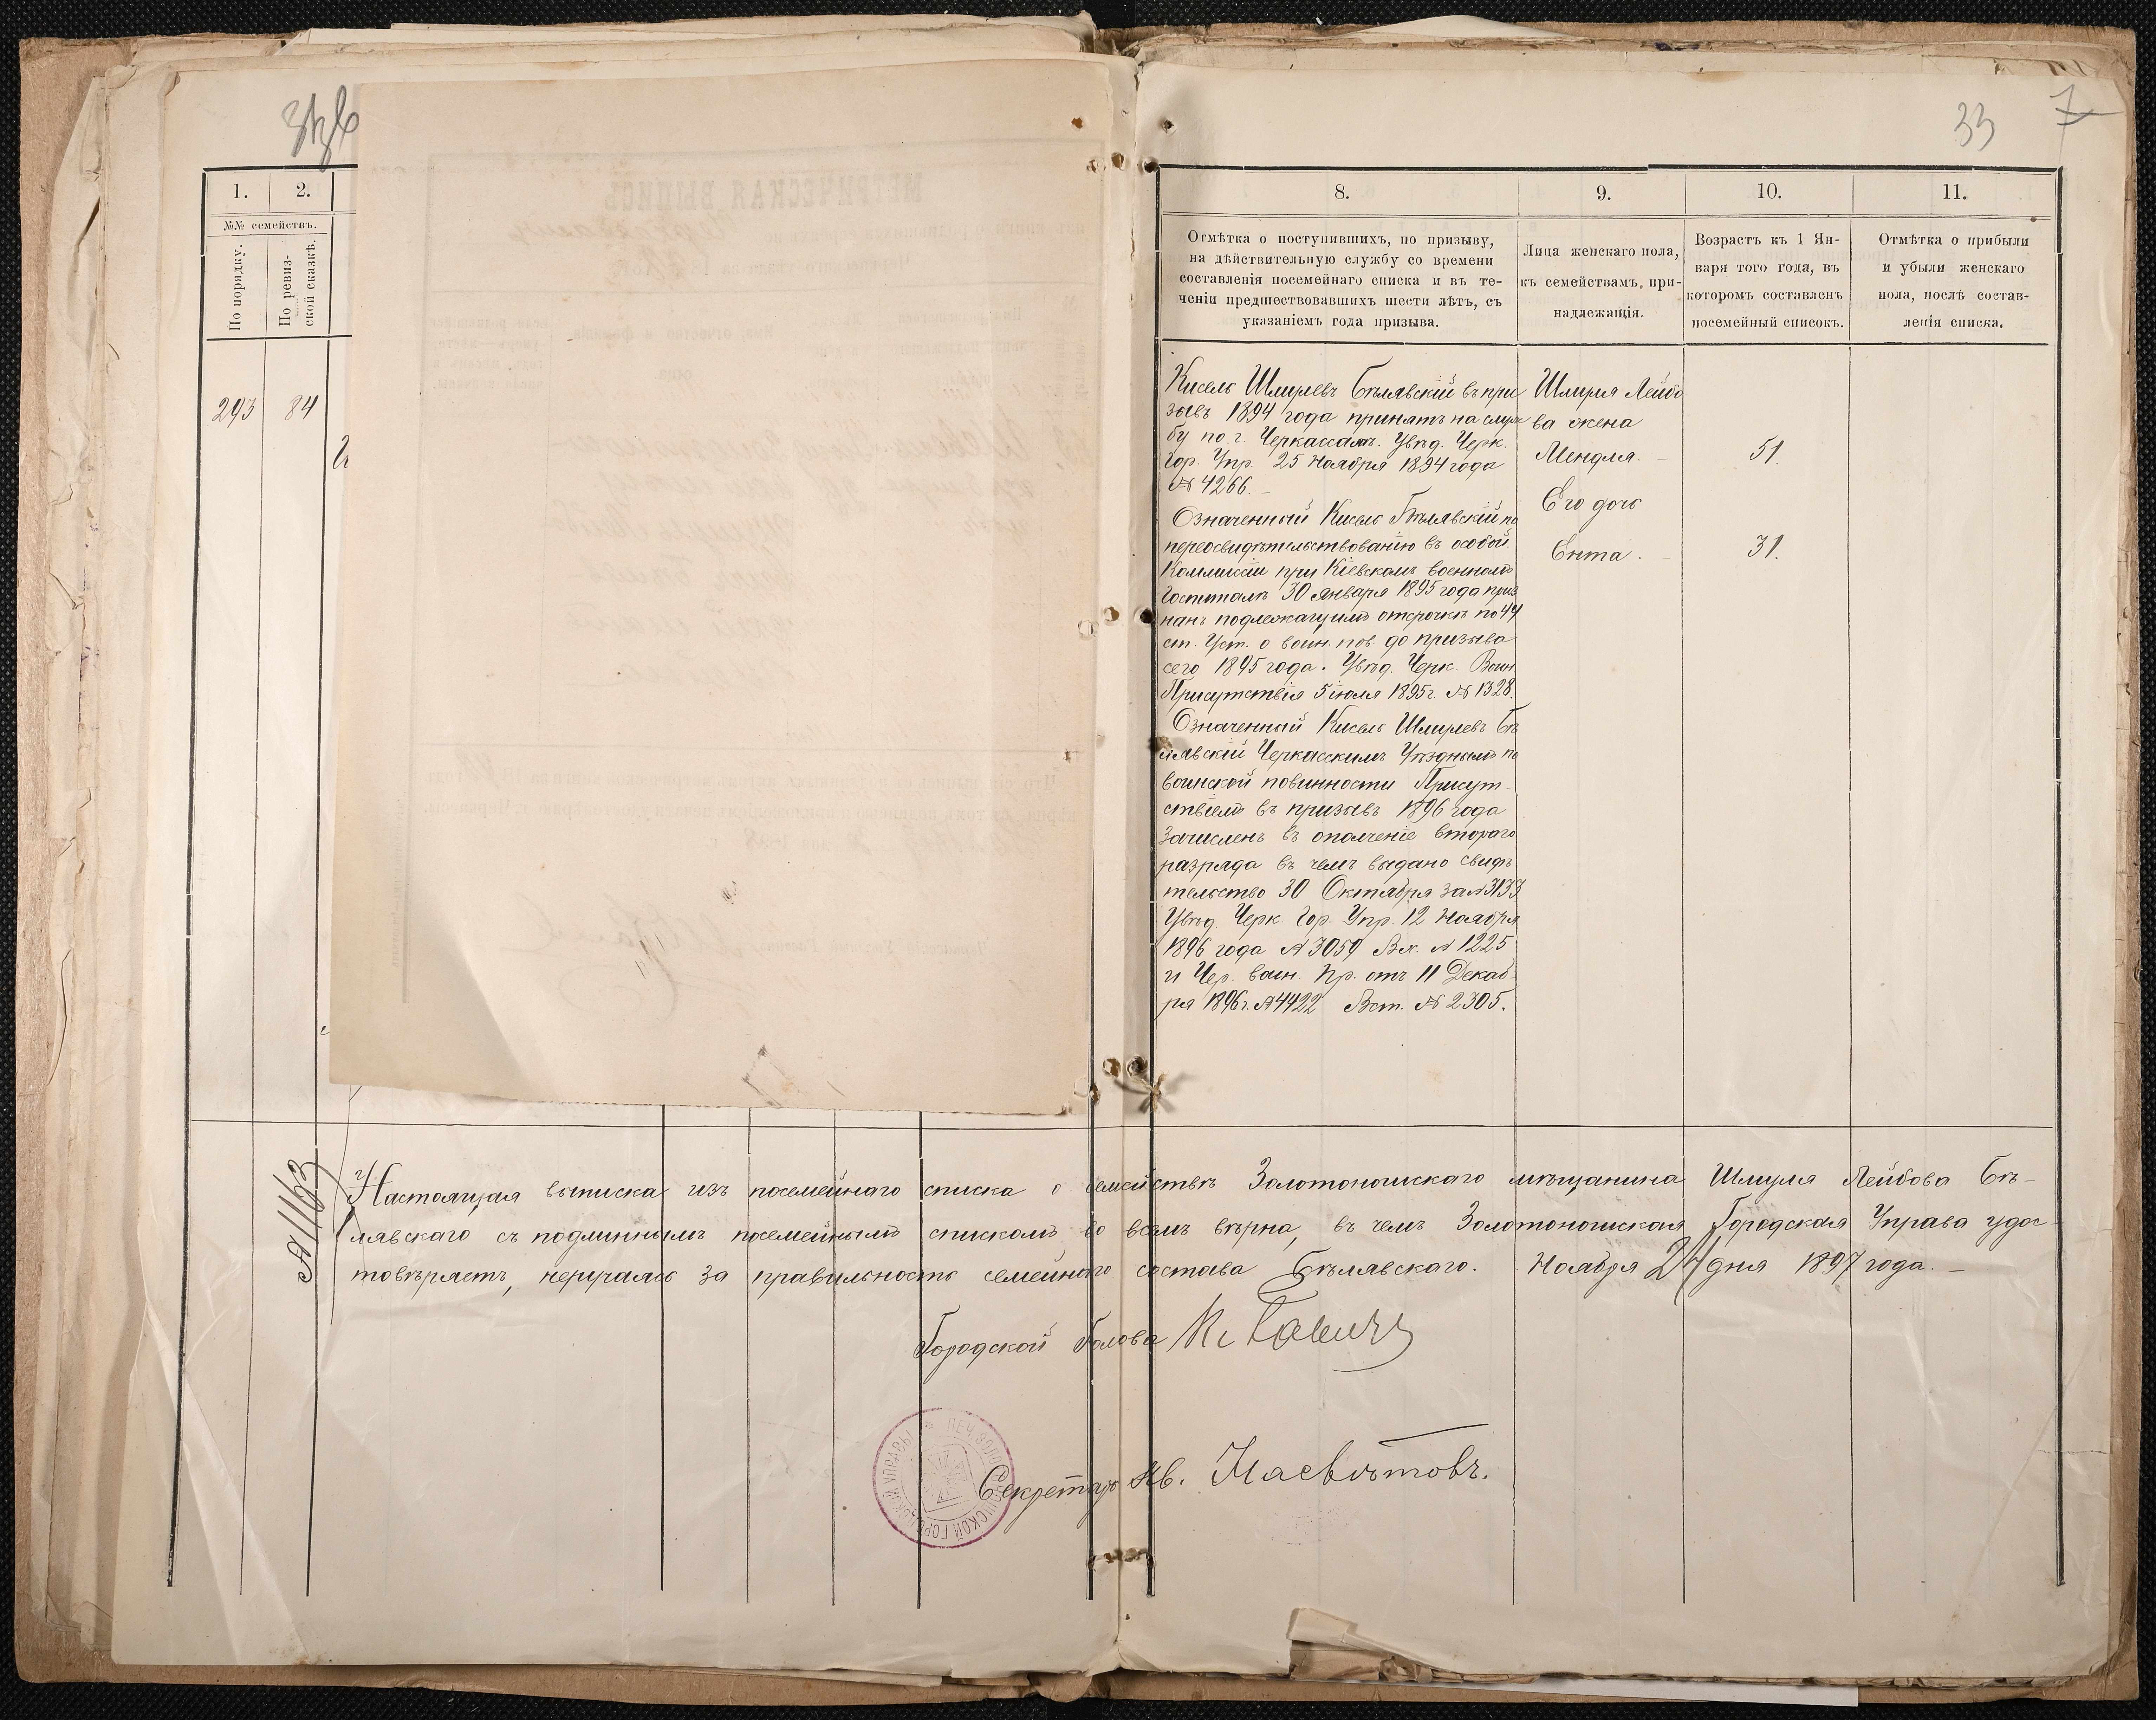 33
7
1.
2.
№№ семействъ.
По порядку.
По ревиз-
ской сказкѣ.
293
84
8.
9.
10.
11.
Отмѣтка о поступившихъ, по призыву,
на дѣйствительную службу со времени
составленія посемейнаго списка и въ те-
ченіи предшествовавшихъ шести лѣтъ, съ
указаніемъ года призыва.
Лица женскаго пола,
къ семействамъ, при-
надлежащія.
Возрастъ къ 1 Ян-
варя того года, въ
которомъ составленъ
посемейный списокъ.
Отмѣтка о прибыли
и убыли женскаго
пола, послѣ состав-
ленія списка.
Кисель Шмулевъ Бѣлявскій въ при
зывъ 1894 года принятъ на служ
бу по г. Черкассамъ. Увѣд. Черк.
Гор. Упр. 25 Ноября 1894 года
№ 4266.
Означенный Кисель Бѣлявскій по
переосвидѣтельствованію въ особой
Коммиссіи при Кіевскомъ военномъ
Госпиталѣ 30 Января 1895 года приз
нанъ подлежащимъ отсрочкѣ по 44
ст. Уст. о воин. пов. до призыва
сего 1895 года. Увѣд. Черк. Воин.
Присутствія 5 іюля 1895 г. № 1328.
Означенный Кисель Шмулевъ Бѣ
лявскій Черкасскимъ Уѣзднымъ по
воинской повинности Присут-
ствіемъ въ призывъ 1896 года
зачисленъ въ ополченіе втораго
разряда въ чемъ выдано свидѣ
тельство 30 Октября за № 3133
Увѣд. Черк. Гор. Упр. 12 Ноября
1896 года № 3059 Вх. № 1225
и Чер. воин. Пр. отъ 11 Декаб-
ря 1896 г. № 4422 Вст. № 2305.
Шмуля Лейбо
ва жена
Мендля.
51.
Его дочь
Ента.
31.
Настоящая выписка изъ посемейнаго списка о семействѣ Золотоношскаго мѣщанина Шмуля Лейбова Бѣ-
лявскаго съ подлиннымъ посемейнымъ спискомъ во всемъ вѣрна, въ чемъ Золотоношская Городская Управа удос-
товѣряетъ, неручаясь за правильность семейнаго состава Бѣлявскаго. Ноября 24 дня 1897 года.
Городской Голова
Секретарь Ив. Насвѣтовъ.